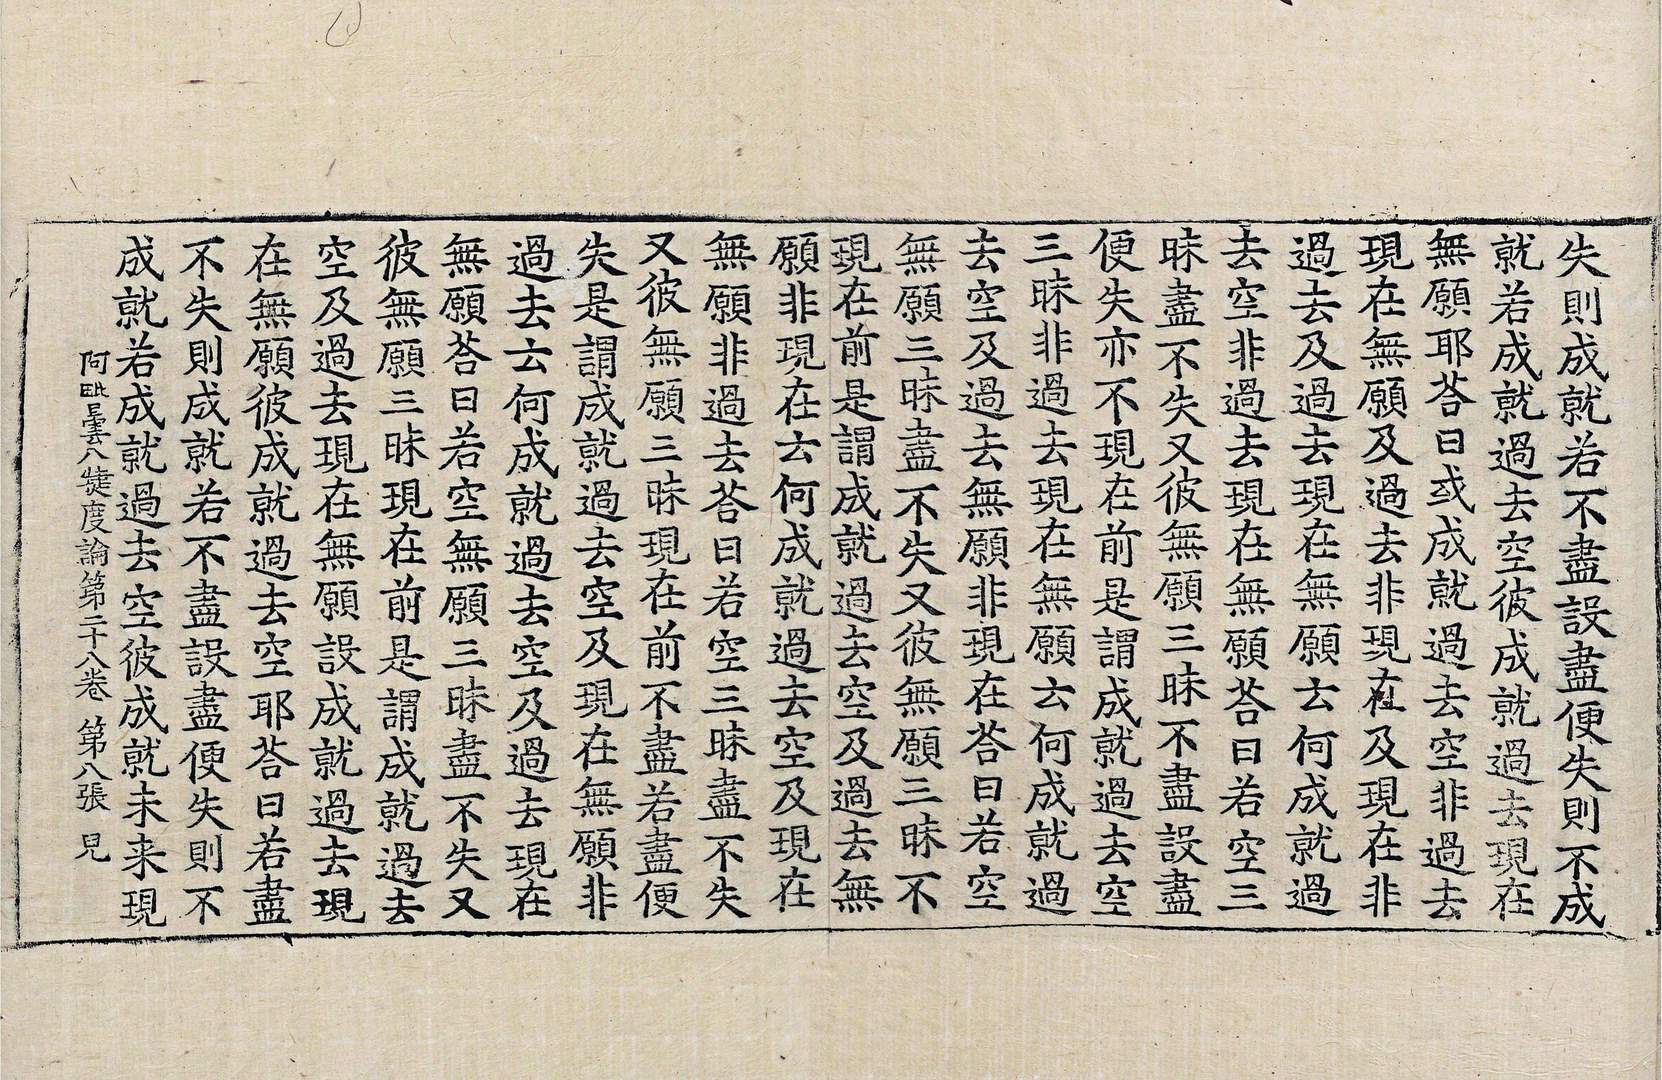 失則成就若不盡設盡便失則不成
就若成就過去空彼成就過去現在
無願耶荅曰或成就過去空非過去
現在無願及過去非現在及現在非
過去及過去現在無願云何成就過
去空非過去現在無願荅曰若空三
昧盡不失又彼無願三昧不盡設盡
便失亦不現在前是謂成就過去空
三昧非過去現在無願云何成就過
去空及過去無願非現在荅曰若空
無願三昧盡不失又彼無願三昧不
現在前是謂成就過去空及過去無
願非現在云何成就過去空及現在
無願非過去荅曰若空三昧盡不失
又彼無願三昧現在前不盡若盡便
失是謂成就過去空及現在無願非
過去云何成就過去空及過去現在
無願荅曰若空無願三昧盡不失又
彼無願三昧現在前是謂成就過去
空及過去現在無願設成就過去現
在無願彼成就過去空耶荅曰若盡
不失則成就若不盡設盡便失則不
成就若成就過去空彼成就未来現
阿毗曇八犍度論第二十八卷 第八張 見